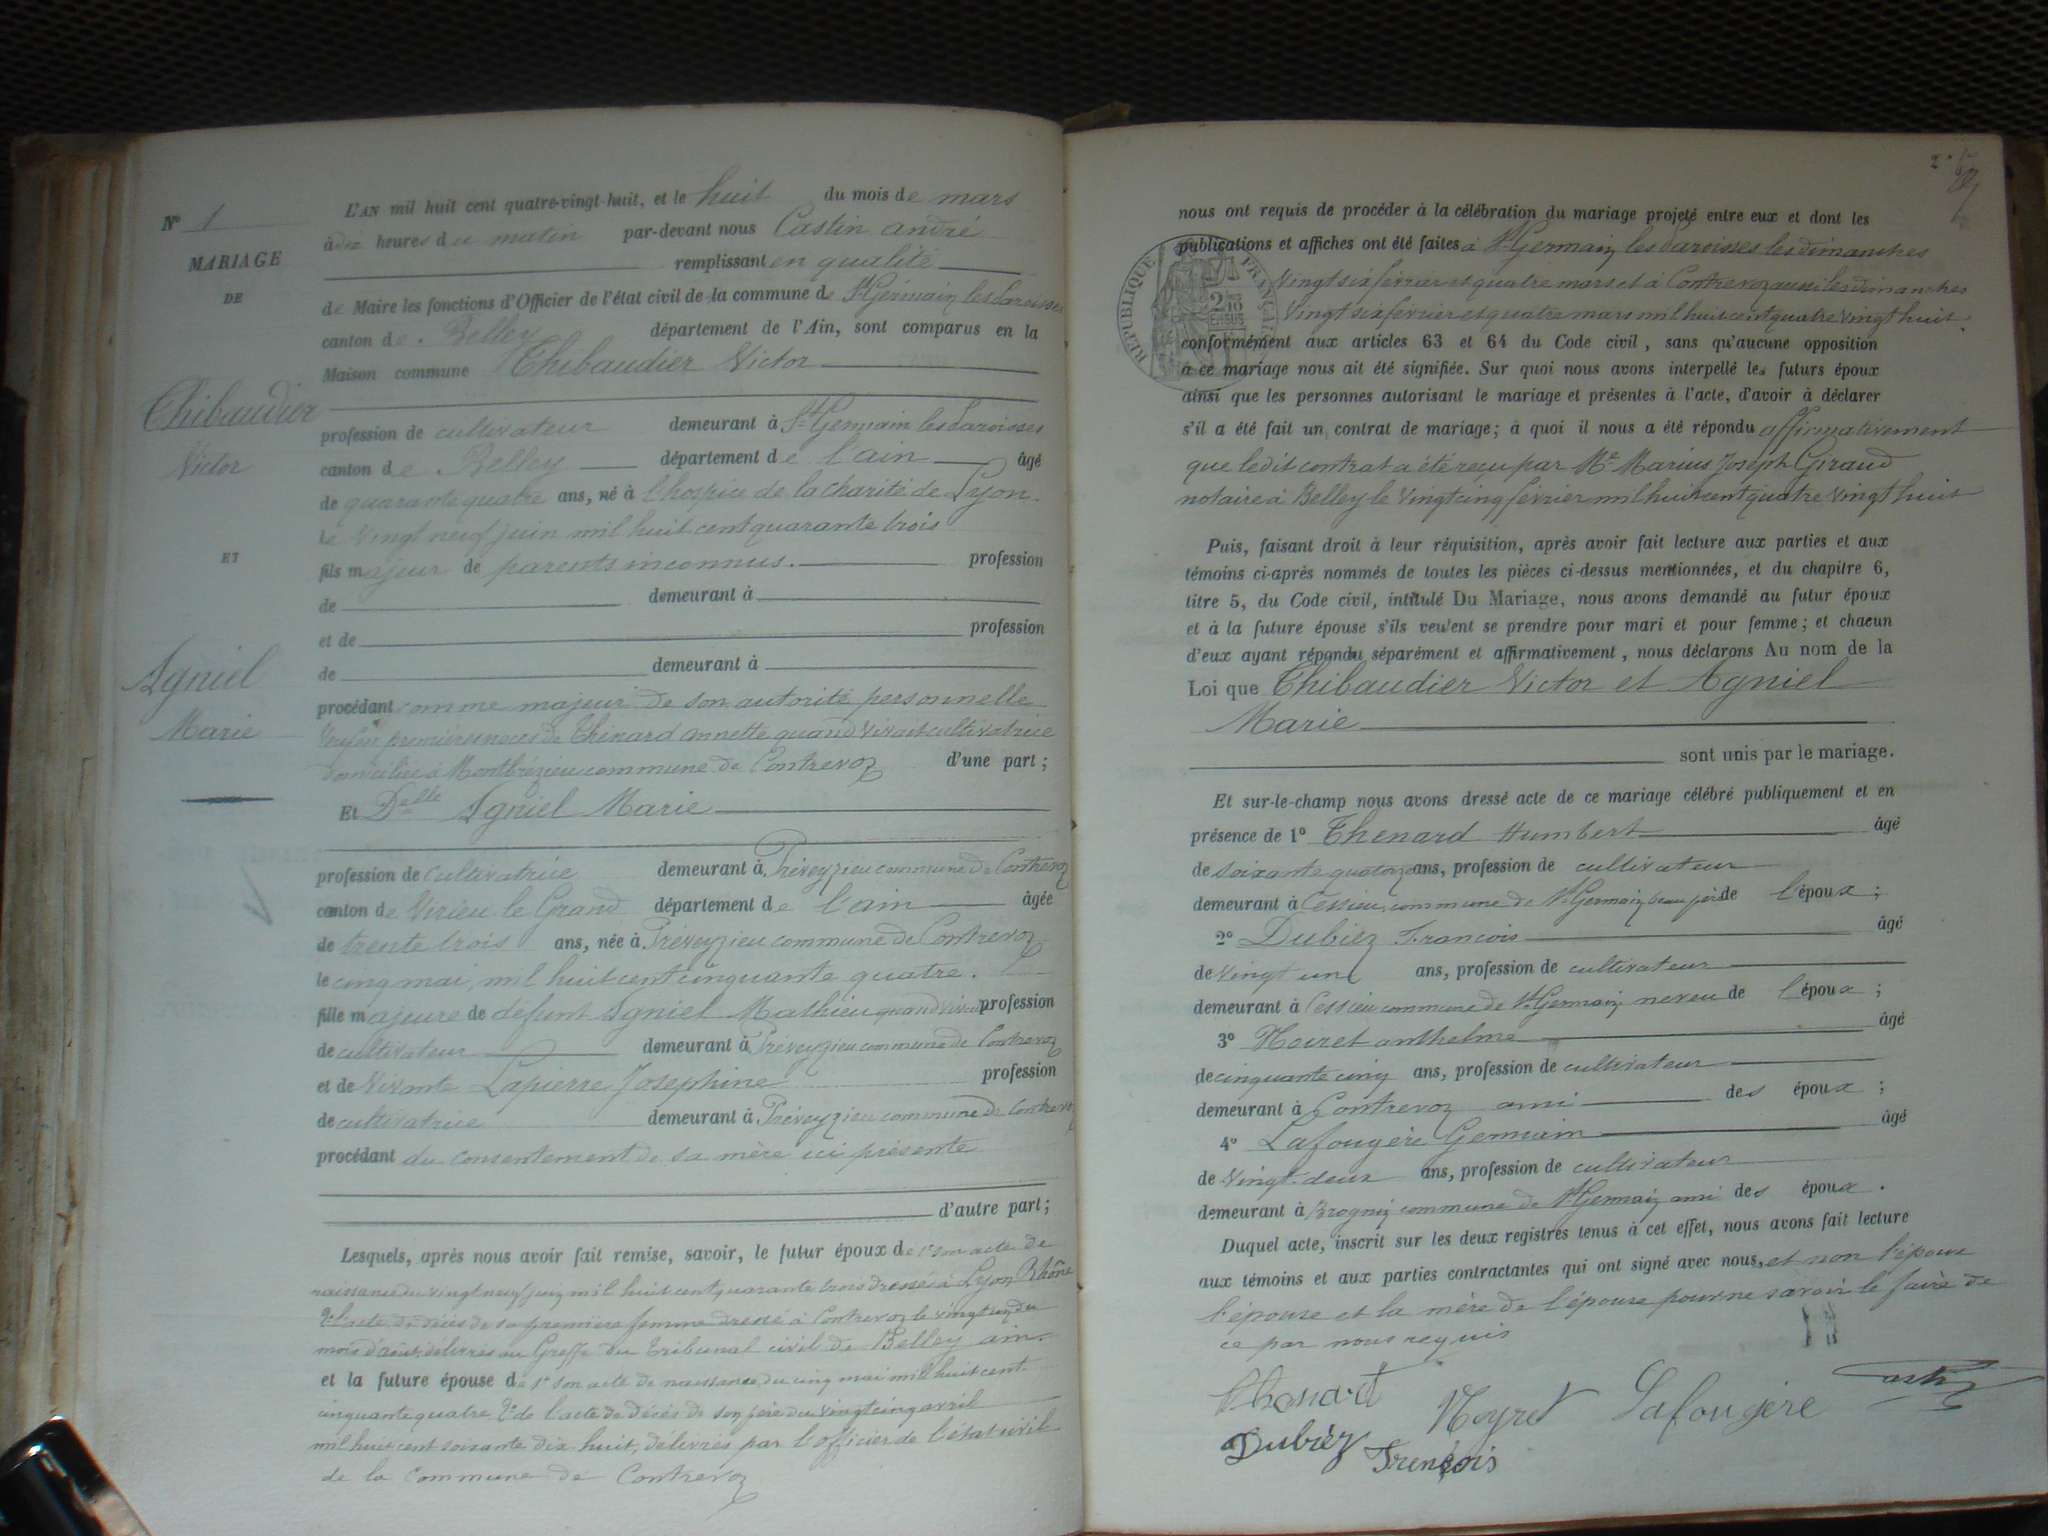 N° 1
MARIAGE
DE
Thibaudier
Victor
ET
Agniel
Marie
L'AN mil huit cent quatre-vingt-huit, et le huit du mois de mars
à dix heures du matin par-devant nous Castin andré
remplissant en qualité
de Maire les fonctions d'Officier de l'état civil de la commune de St Germain les Paroisses
canton de Belley département de l'Ain, sont comparus en la
Maison commune Thibaudier Victor
profession de cultivateur demeurant à St Germain les Paroisses
canton de Belley département de l'ain âgé
de quarante quatre ans, né à l'hospice de la charité de Lyon.
le Vingt neuf juin mil huit cent quarante trois
fils majeur de parents inconnus. profession
de demeurant à
et de profession
de demeurant à
procédant comme majeur de son autorité personnelle
Veuf en premières noces de Thénard annette quand vivait cultivatrice
domiciliée à Montbrézieu commune de Contrevoz d'une part ;
Et Delle Agniel Marie
profession de cultivatrice demeurant à Préveyzieu commune de Contrevoz
canton de Virieu le Grand département de l'ain âgée
de trente trois ans, née à Préveyzieu commune de Contrevoz
le cinq mai, mil huit cent cinquante quatre.
fille majeure de défunt Agniel Mathieu quand vivait profession
de cultivateur demeurant à Préveyzieu commune de Contrevoz
et de Vivante Lapierre Josephine profession
de cultivatrice demeurant à Préveyzieu commune de Contrevoz
procédant du consentement de sa mère ici présente
d'autre part ;
Lesquels, après nous avoir fait remise, savoir, le futur époux de 1° son acte de
naissance du vingt neuf juin mil huit cent quarante trois dressé à Lyon Rhône
2° l'acte de décès de sa première femme dressé à Contrevoz le vingt un du
mois d'août, délivrés au Greffe du Tribunal civil de Belley ain.
et la future épouse de 1° son acte de naissance du cinq mai mil huit cent
cinquante quatre 2° de l'acte de décès de son père du vingt cinq avril
mil huit cent soixante dix huit, délivrés par l'officier de l'état civil
de la Commune de Contrevoz
2°
nous ont requis de procéder à la célébration du mariage projeté entre eux et dont les
publications et affiches ont été faites à St Germain les Paroisses les dimanches
Vingt six février et quatre mars et à Contrevoz aussi les dimanches
Vingt six février et quatre mars mil huit cent quatre vingt huit.
RÉPUBLIQUE FRANÇAISE
conformément aux articles 63 et 64 du Code civil, sans qu'aucune opposition
à ce mariage nous ait été signifiée. Sur quoi nous avons interpellé les futurs époux
ainsi que les personnes autorisant le mariage et présentes à l'acte, d'avoir à déclarer
s'il a été fait un contrat de mariage ; à quoi il nous a été répondu affirmativement
que ledit contrat a été reçu par Me Marius Joseph Giraud
notaire à Belley le Vingt cinq février mil huit cent quatre vingt huit
Puis, faisant droit à leur réquisition, après avoir fait lecture aux parties et aux
témoins ci-après nommés de toutes les pièces ci-dessus mentionnées, et du chapitre 6,
titre 5, du Code civil, intitulé Du Mariage, nous avons demandé au futur époux
et à la future épouse s'ils veulent se prendre pour mari et pour femme ; et chacun
d'eux ayant répondu séparément et affirmativement, nous déclarons Au nom de la
Loi que Thibaudier Victor et Agniel
Marie
sont unis par le mariage.
Et sur-le-champ nous avons dressé acte de ce mariage célébré publiquement et en
présence de 1° Thenard Humbert âgé
de soixante quatorze ans, profession de cultivateur
demeurant à Cessieu commune de St Germain, beau père de l'époux ;
2° Dubiez François âgé
de Vingt un ans, profession de cultivateur
demeurant à Cessieu commune de St Germain neveu de l'époux ;
3° Moiret anthelme âgé
de cinquante cinq ans, profession de cultivateur
demeurant à Contrevoz ami des époux ;
4° Lafougère Germain âgé
de Vingt-deux ans, profession de cultivateur
demeurant à Brognin commune de St Germain ami des époux.
Duquel acte, inscrit sur les deux registres tenus à cet effet, nous avons fait lecture
aux témoins et aux parties contractantes qui ont signé avec nous, et non l'époux
l'épouse et la mère de l'épouse pour ne savoir le faire de
ce par nous requis
Thenard Moyret Lafougère Castin
Dubiéz François